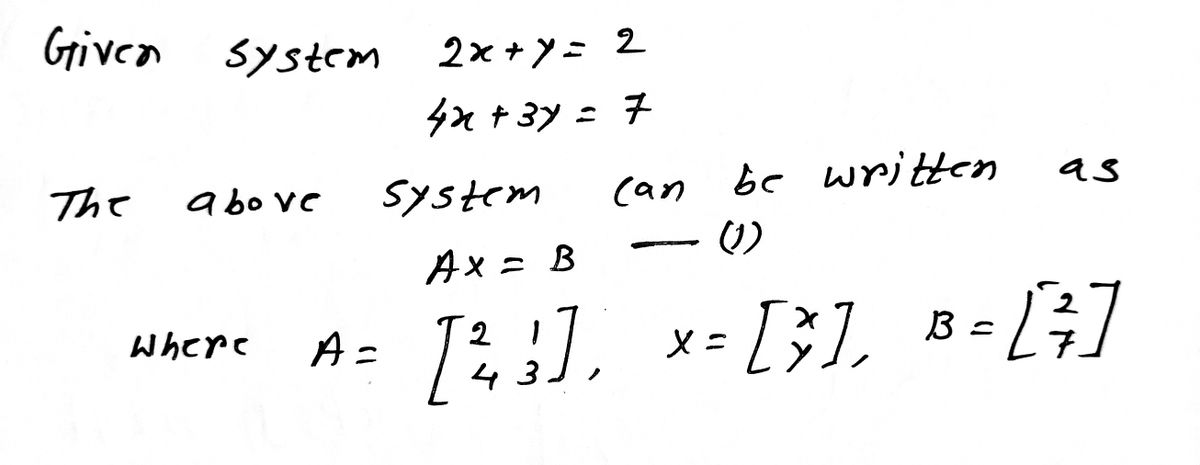 Given system 2x + y = 2
4x + 3y = 7
The above system can be written as
AX = B — (1)
where A = [2 1; 4 3], X = [x; y], B = [2; 7]